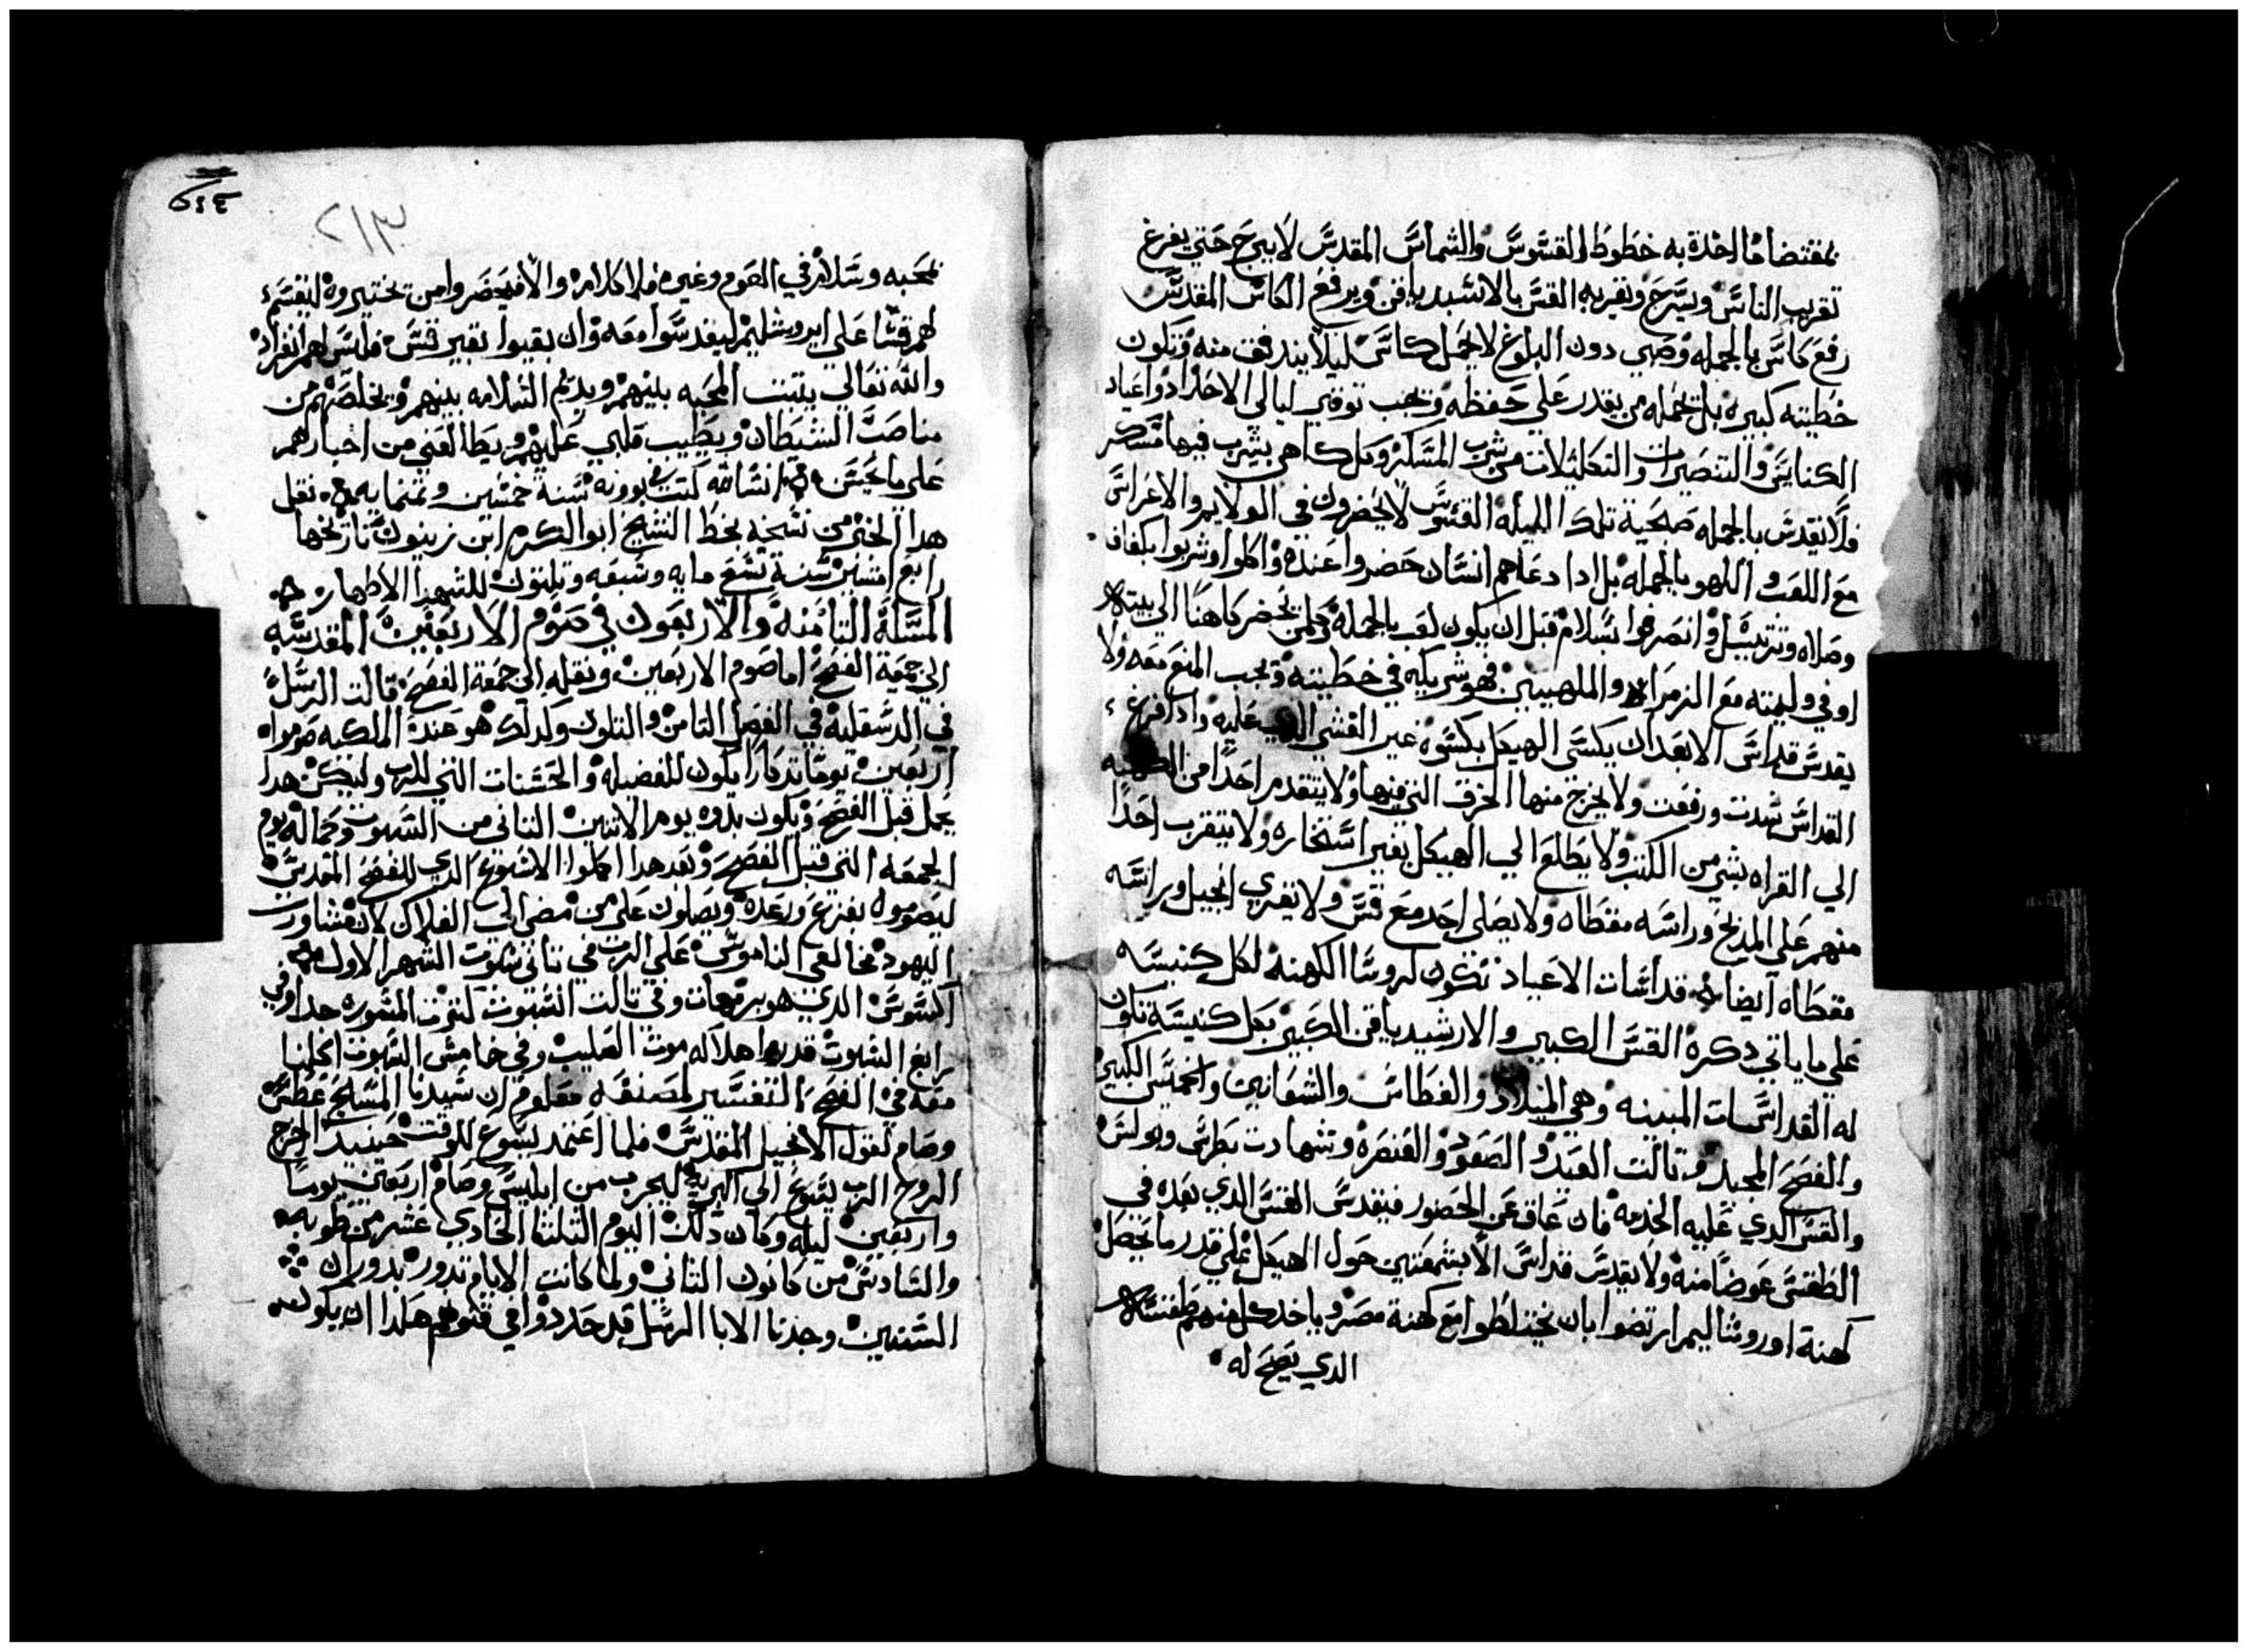 بمقتضا ما اخدة به خطوط القسوس والشماس المقدس لا يبرح حتي يفرغ
تقريب الناس ويسرع وتقريبه القس بالاسبدياقن ويرفع الكاس المقدس
رفع كاس بالجمله وصبي دون البلوغ لا يحمل كاس ليلا يندفق منه وتكون
خطيته كبيره بل يحمله من يقدر علي حفظه ويجب توقي ليالي الاحاد واعياد
الكنايس والتنصيرات والتكليلات من شرب المسكر وكل كاهن يشرب فيها مسكر
فلا يقدس بالجمله صحية تلك الليله القسوس لا يحضرون في الولايم والاعراس
مع اللعب واللهو بالجمله بل ادا دعاهم انسان حضروا عنده واكلوا وشربوا بكفاف
وصلاه وترتيل وانصرفوا بسلام قبل ان يكون لعب بالجمله وكلمن يحضر كاهنا الي بيته
او في وليمته مع الزمراه والملهيين فهو شريكه في خطيته ويجب المنع معه ولا
يقدس قداس الا بعد ان يكسي الهيكل بكسوه غير القشي الدي عليه وادا فرغ
القداس شدت ورفعت ولا يخرج منها الخرق التي فيها ولا يتقدم احدا من الكهنه
الي القراه بشي من الكتب ولا يطلع الي الهيكل بغير استخاره ولا يتقرب احدا
منهم علي المدبح وراسه مغطاه ولا يصلي احد مع قس ولا يقري انجيل وراسه
مغطاه ايضا قداسات الاعياد تكون لروسا الكهنه لكل كنيسه
علي ما ياتي دكره القس الكبير والارشيدياقن الكبير بكل كنيسه تكون
له القداسات المبينه وهي الميلاد والغطاس والشعانين والخميس الكبير
والفصح المجيد وتالت العيد والصعود والعنصره وشهادت بطرس وبولس
والقس الدي عليه الخدمه فان عاق عن الحضور فيقدس القس الدي بعده في
الطقس عوضا منه ولا يقدس قداس الا بشمعتين حول الهيكل علي قدر ما يحصل
كهنة اوروشاليم ارتضوا بان يختلطوا مع كهنة مصر وياخد كل منهم طقسه
الدي يصح له
٢١٣
بمحبه وسلام في القوم وغيره فلا كلام والا فيحضروا من يختيروه ليقسم
لهم قسا علي ايروشليم ليقدسوا معه وان بقيوا بغير قس فليس لهم انفراد
والله تعالي يتبت المحبه بينهم ويديم السلامه بينهم ويخلصهم من
مناصب الشيطان ويطيب قلبي عليهم ويطالعني من اخبارهم
علي ما يحسن انشالله كتب في بوونه سنة خمسين وتمنمايه نقل
هدا الخبر من نسخه بخط الشيخ ابو الكرم ابن زينون تاريخها
رابع امشير سنة تسع مايه وسبعه وتلتون للشهدا الاطهار
المسلة التامنة والاربعون في صوم الاربعين المقدسه
الي جمعة الفصح اما صوم الاربعين ونقله الي جمعة الفصح قالت الرسل
في الدسقليه في الفصل التامن والتلتون وكدلك هو عندة الملكيه صوموا
اربعين يوما تدكارا يكون للفضيله والحسنات التي للرب وليكن هدا
يعمل قبل الفصح ويكون بدوه يوم الاتنين التاني من السبوت وكماله يوم
الجمعه التي قبل الفصح وبعد هدا اكملوا الاسبوع الدي للفصح المقدس
ليصوموه بفزع ورعده ويصلون علي من مضي الي الهلاك لان تشاورت
اليهود مخالفي الناموس علي الرب في تاني سبوت الشهر الاول من
اكسوس الدي هو برمهات وفي تالت السبوت كترت المشوره جدا وفي
رابع السبوت قدروا هلاكه موت الصليب وفي خامس السبوت اكلنا
معه في الفصح التفسير لمصنفه معلوم ان سيدنا المسيح غطس
وصام لقول الانجيل المقدس فلما اعتمد يسوع للوقت حينيد اخرج
الروح الرب يسوع الي البريه ليجرب من ابليس وصام اربعين يوما
واربعين ليله وكان دلك اليوم التلتا الحادي عشر من طوبه
والسادس من كانون التاني ولما كانت الايام تدور بدوران
السنين وجدنا الابا الرسل قد حددوا في قتولهم هكدا ان يكون